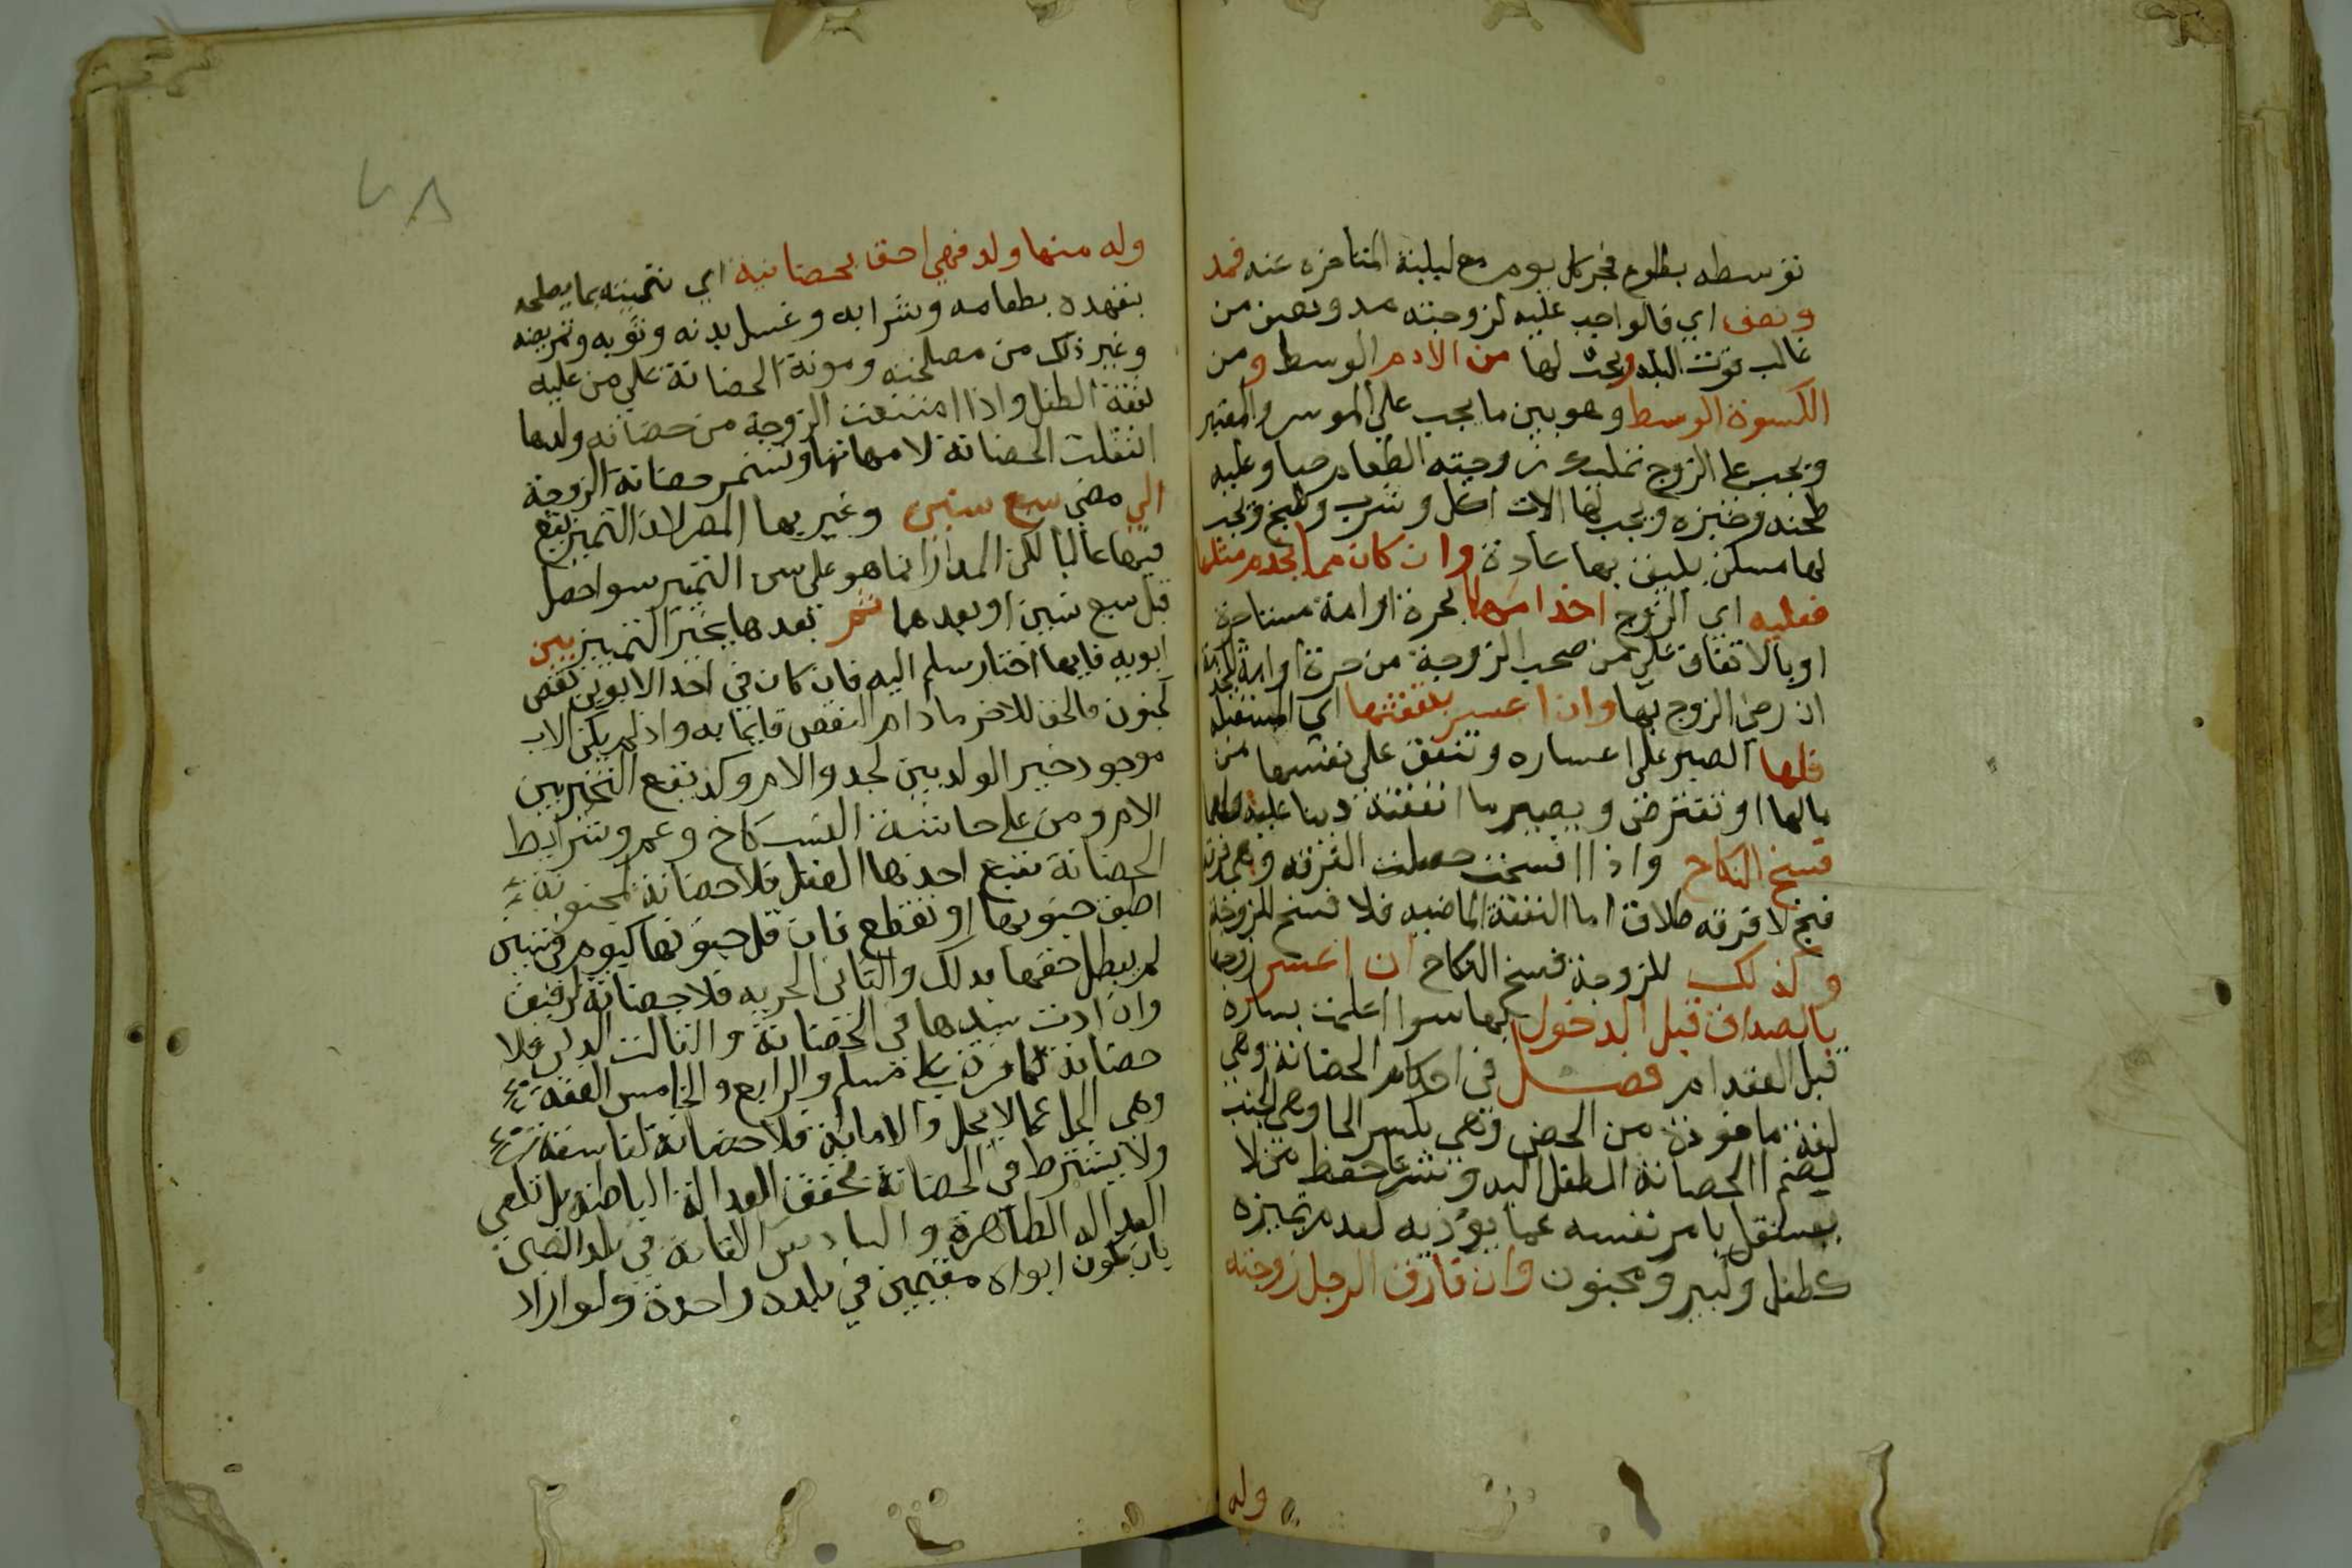 توسطه بطلوع فجر كل يوم مع ليلته المتاخره عنه فمد
ونصف اي فالواجب عليه لزوجته مد ونصف من
غالب قوت البلد ويجب لها من الادم الوسط ومن
الكسوة الوسط وهو بين ما يجب على الموسر والمعسر
ويجب على الزوج تمليك زوجته الطعام حبا وعليه
طحنه وخبزه ويجب لها الات اكل وشرب وطبخ ويجب
لها مسكن يليق بها عادة وان كان مما يخدم مثلها
فعليه اي الزوج اخدامها بحرة او امة مستاجرة
او بالانفاق على من صحب الزوجة من حرة او امة لخدمة
ان رضي الزوج بها وان اعسر بنفقتها اي المستقبلة
فلها الصبر على اعساره وتنفق على نفسها من
مالها او تقترض ويصير ما انفقته دينا عليه ولها
فسخ النكاح واذا فسخت حصلت الفرقه وهي فرقة
فسخ لا فرقه طلاق اما النفقة الماضيه فلا فسخ للزوجة
وكذلك للزوجة فسخ النكاح ان اعسر زوجها
بالصداق قبل الدخول بها سوا اعلمت يساره
قبل العقد ام فصل في احكام الحضانة وهي
لغة ماخوذة من الحضن وهي بكسر الحا وهي الجنب
لضم الحضانة الطفل اليه وشرعا حفظ من لا
يستقل بامر نفسه عما يؤذيه لعدم تميزه
كطفل وكبير ومجنون وان فارق الرجل زوجته
وله
٧٨
وله منها ولد فهي احق بحضانيه اي تنميته بما يصلحه
بتعهده بطعامه وشرابه وغسل بدنه وثوبه وتمريضه
وغير ذلك من مصلحته ومونة الحضانة على من عليه
نفقة الطفل واذا امتنعت الزوجة من حضانه ولدها
انتقلت الحضانة لامهاتها وتستمر حضانة الزوجة
الي مضي سبع سنين وعبر بها المص لان التميز يقع
فيها غالبا لكن المدار انما هو على سن التميز سوا حصل
قبل سبع سنين او بعدها ثم بعدها يخير التمييز بين
ابويه فايهما اختار سلم اليه فان كان في احد الابوين نقص
كجنون فالحق للاخر ما دام النقص قايما به واذ لم يكن الاب
موجود خير الولد بين الجد والام وكذ يقع التخير بين
الام ومن على حاشية النسب كاخ وعم وشرايط
الحضانة سبع احدها العقل فلا حضانة لمجنونة
اطبق جنونها او تقطع فان قل جنونها كيوم في سنين
لم يبطل حقها بذلك والثاني الحريه فلا حضانة لرقيق
وان اذن سيدها في الحضانة والثالث الدين فلا
حضانة لكافرة على مسلم والرابع والخامس العفة
وهي الكف عما لا يحل والامانة فلا حضانة لفاسقة
ولا يشترط في الحضانة تحقق العدالة الباطنة بل تكفي
العداله الظاهرة والسادس الاقامة في بلد الصبي
بان يكون ابواه مقيمين في بلده واحدة ولو اراد